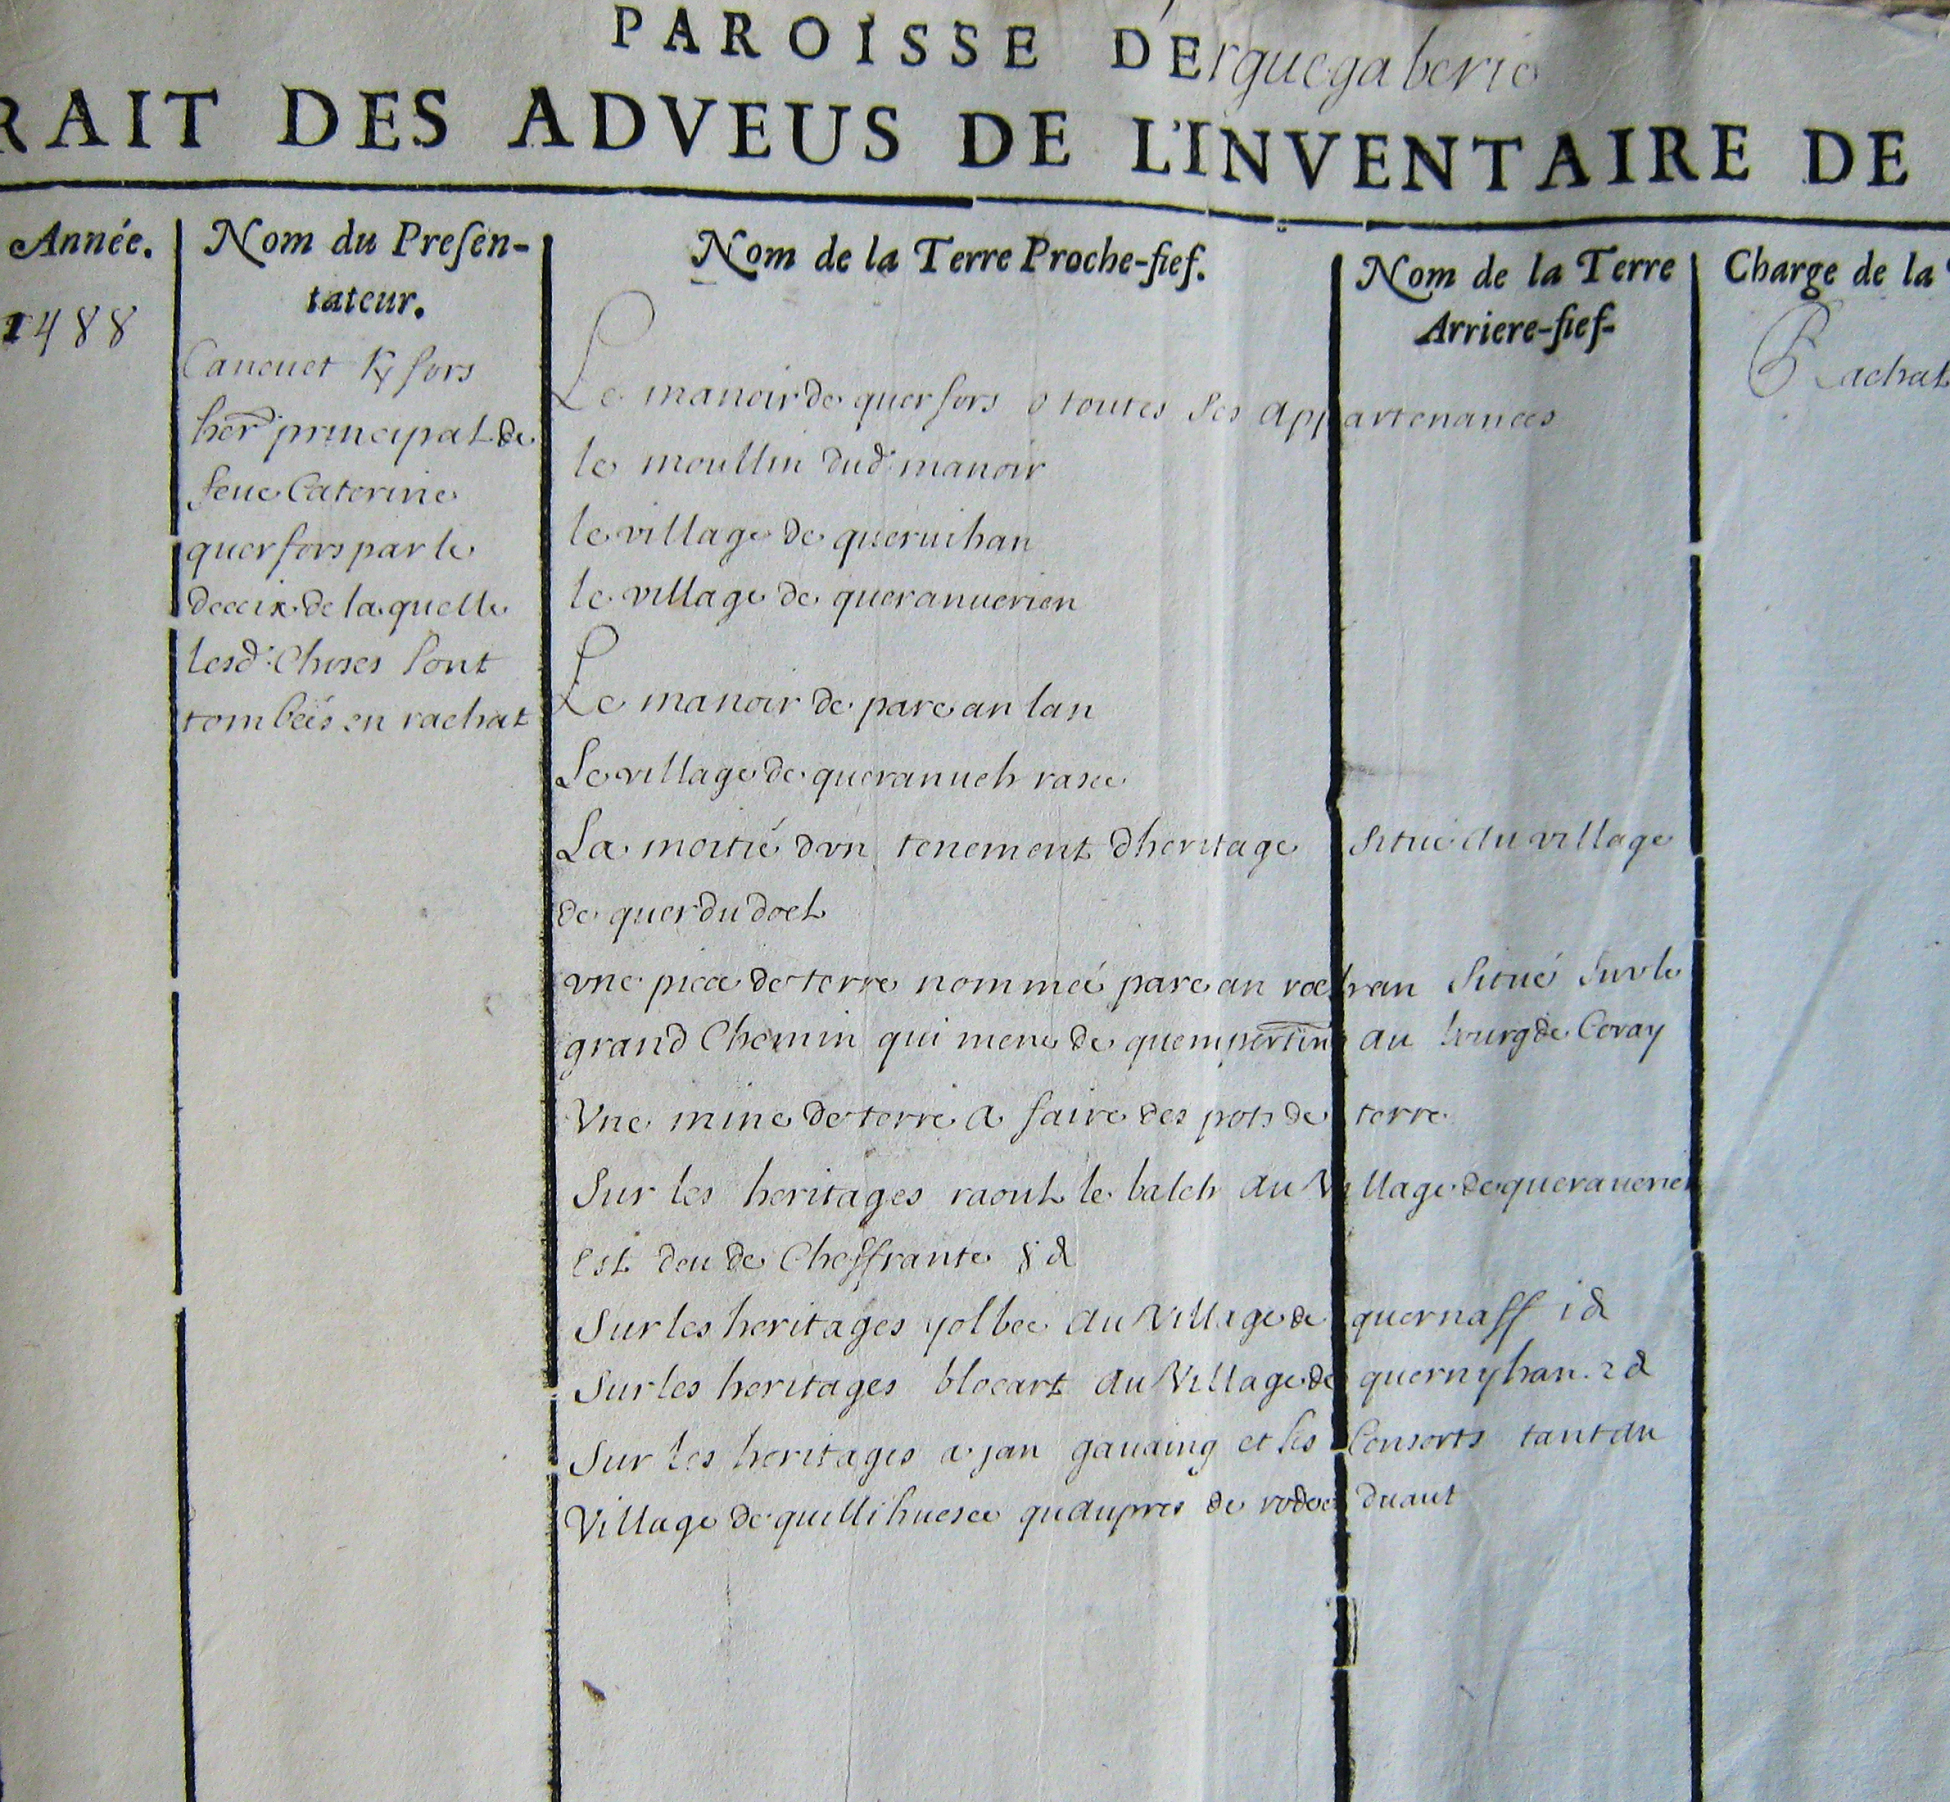 PAROISSE DErguegaberic
RAIT DES ADVEUS DE L'INVENTAIRE DE
Année.
1488
Nom du Presen-
tateur.
Canevet Kfors
her principal de
feue Caterine
querfors par le
deceix de laquelle
lesd. Choses sont
tombéés en rachat
Nom de la Terre Proche-fief.
Nom de la Terre
Arriere-fief.
Charge de la
Rachat
Le manoir de querfors o toutes ses appartenances
le moullin dud. manoir
le village de queruihan
le village de queranuerien
Le manoir de parc an lan
Le village de queranueh rasce
La moitié dvn tenement dheritage situé au village
de querdudoel
vne piece de terre nommée parc an rochran situé sur le
grand Chemin qui mene de au bourg de Coray
Vne mine de terre a faire des pots de terre
Sur les heritages raoul le balch au Village de queraueriei
est deu de Cheffrante 8 d
Sur les heritages yolbec au Village de quernaff i d
Sur les heritages blocart au Village de quernyhan. 2 d
Sur les heritages a jan gauaing et ses Consorts tant au
Village de quillihuesce quaupres de duaut